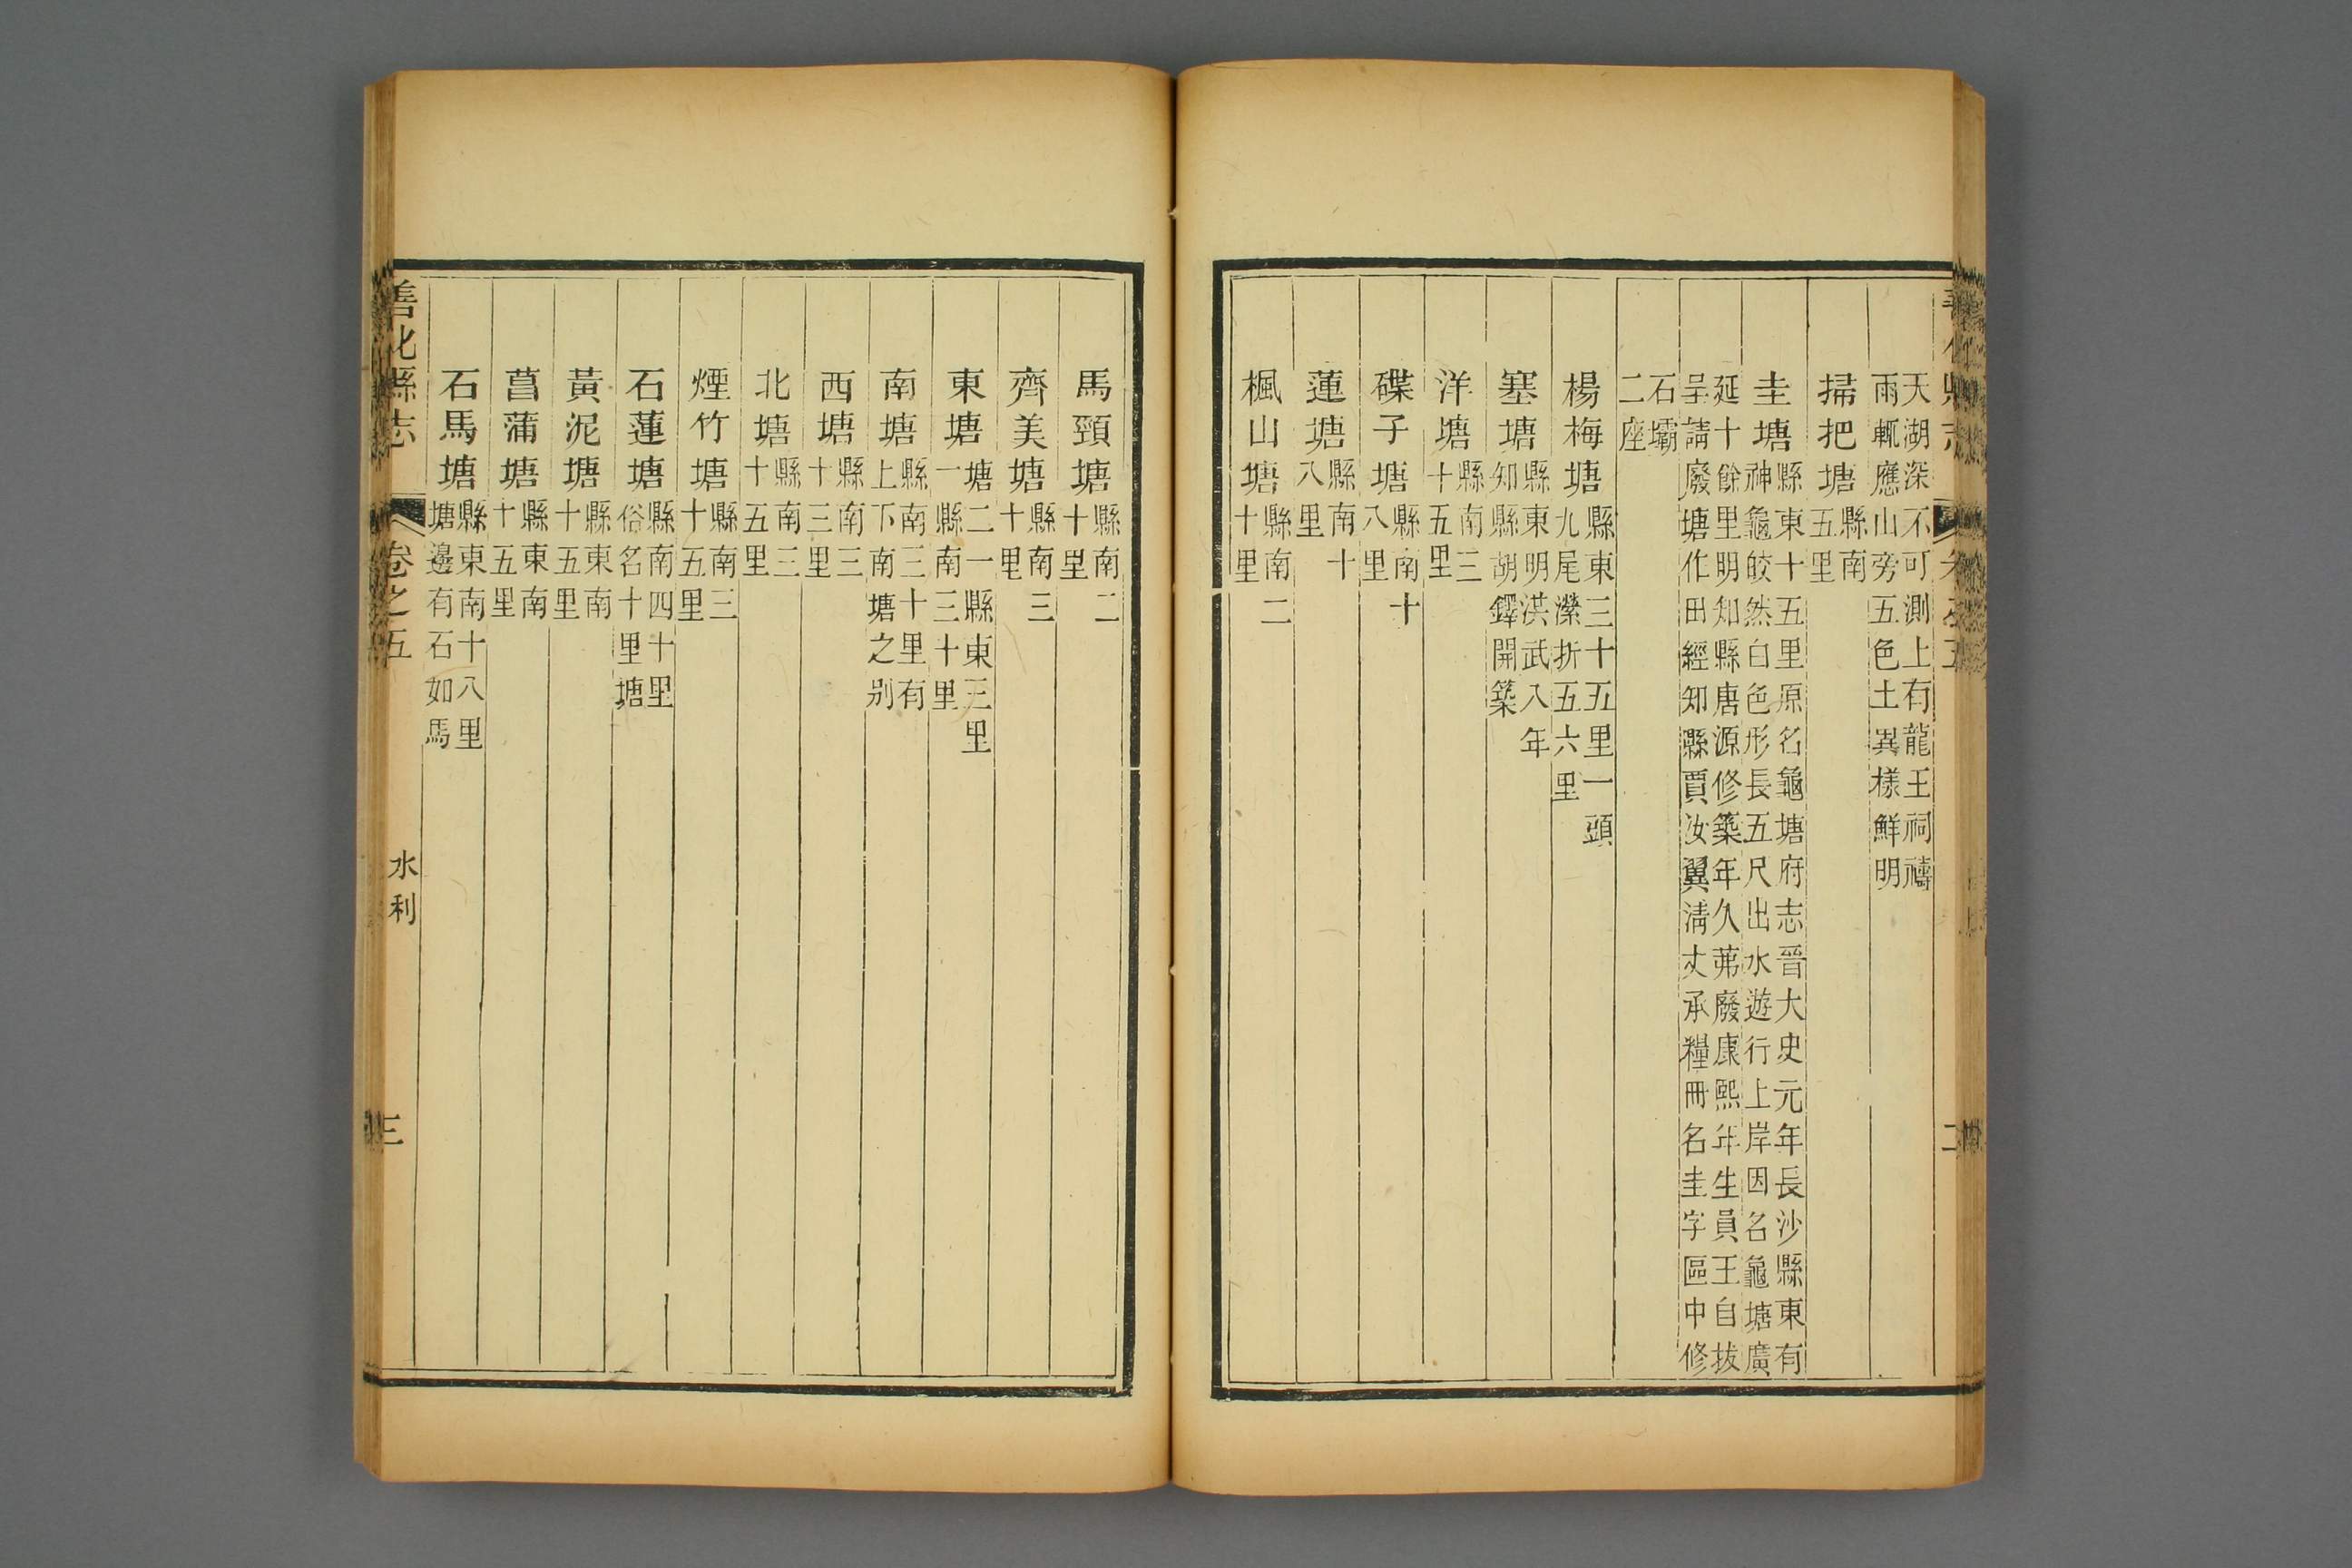 天湖深不可測上有龍王祠禱
雨輒應山旁五色土異樣鮮明
掃把塘縣南五里
圭塘縣東十五里原名龜塘府志晉大史元年長沙縣東有
神龜皎然白色形長五尺出水遊行上岸因名龜塘廣
延十餘里明知縣唐源修築年久茀廢康熙年生員王自拔
呈請廢塘作田經知縣賈汝翼淸丈承糧冊名圭字區中修
石壩
二座
楊梅塘縣東三十五里一頭九尾瀠折五六里
塞塘縣東明洪武入年知縣胡鐸開築
洋塘縣南三十五里
碟子塘縣南十八里
蓮塘縣南十八里
楓山塘縣南二十里
馬頸塘縣南二十里
齊美塘縣南三十里
東塘塘二一縣東三里一縣南三十里
南塘縣南三十里有上下南塘之別
西塘縣南三十三里
北塘縣南三十五里
煙竹塘縣南三十五里
石蓮塘縣南四十里俗名十里塘
黃泥塘縣東南十五里
菖蒲塘縣東南十五里
石馬塘縣東南十八里塘邊有石如馬
善化縣志
卷之五
水利
三